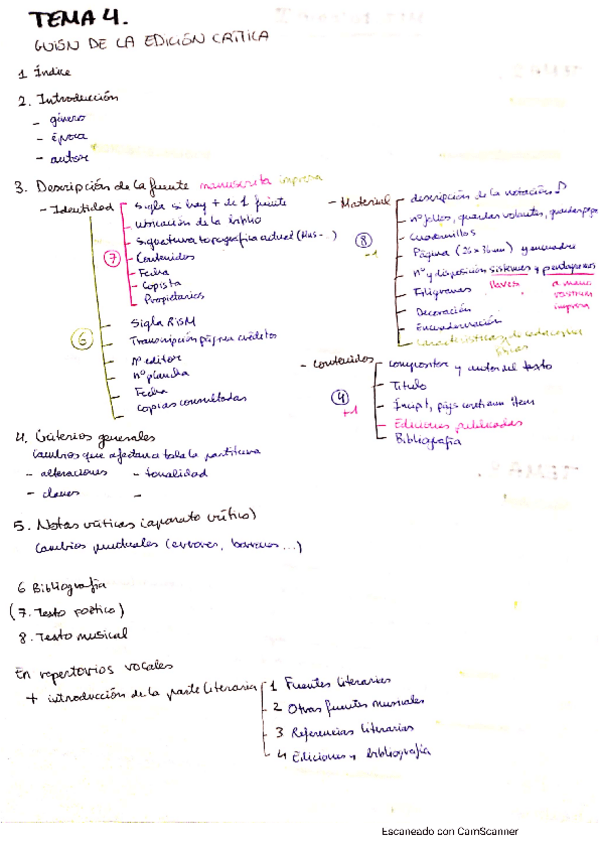 TEMA 4.
GUIÓN DE LA EDICIÓN CRÍTICA
1 Índice
2. Introducción
- género
- época
- autor
3. Descripción de la fuente manuscrita impresa
- Identidad
7
Sigla si hay + de 1 fuente
Ubicación de la
Signatura topográfica actual (Mus-...)
Contenidos
Fecha
Copista
Propietarios
6
Sigla RISM
Transcripción página créditos
Nº editor
nº plancha
Fecha
Copias consultadas
- Material
8
-1
descripción de la notación ♪
nº folios, guardas volantes,
Cuadernillos
Página (26 x 36 cm) y
nº y disposición sistemas y pentagramas
Filigranas llaves a mano
impresa
Decoración
Encuadernación
Características de
- Contenidos
4
+1
compositor y autor del texto
Título
Íncipit, págs contienen ítem
Ediciones publicadas
Bibliografía
4. Criterios generales
Cambios que afectan a toda la partitura
- alteraciones - tonalidad
- claves -
5. Notas críticas (aparato crítico)
Cambios puntuales (errores, borrones...)
6 Bibliografía
(7. Texto poético)
8. Texto musical
En repertorios vocales
+ introducción de la parte literaria
1 Fuentes literarias
2 Otras fuentes musicales
3 Referencias literarias
4 Ediciones y bibliografía
Escaneado con CamScanner